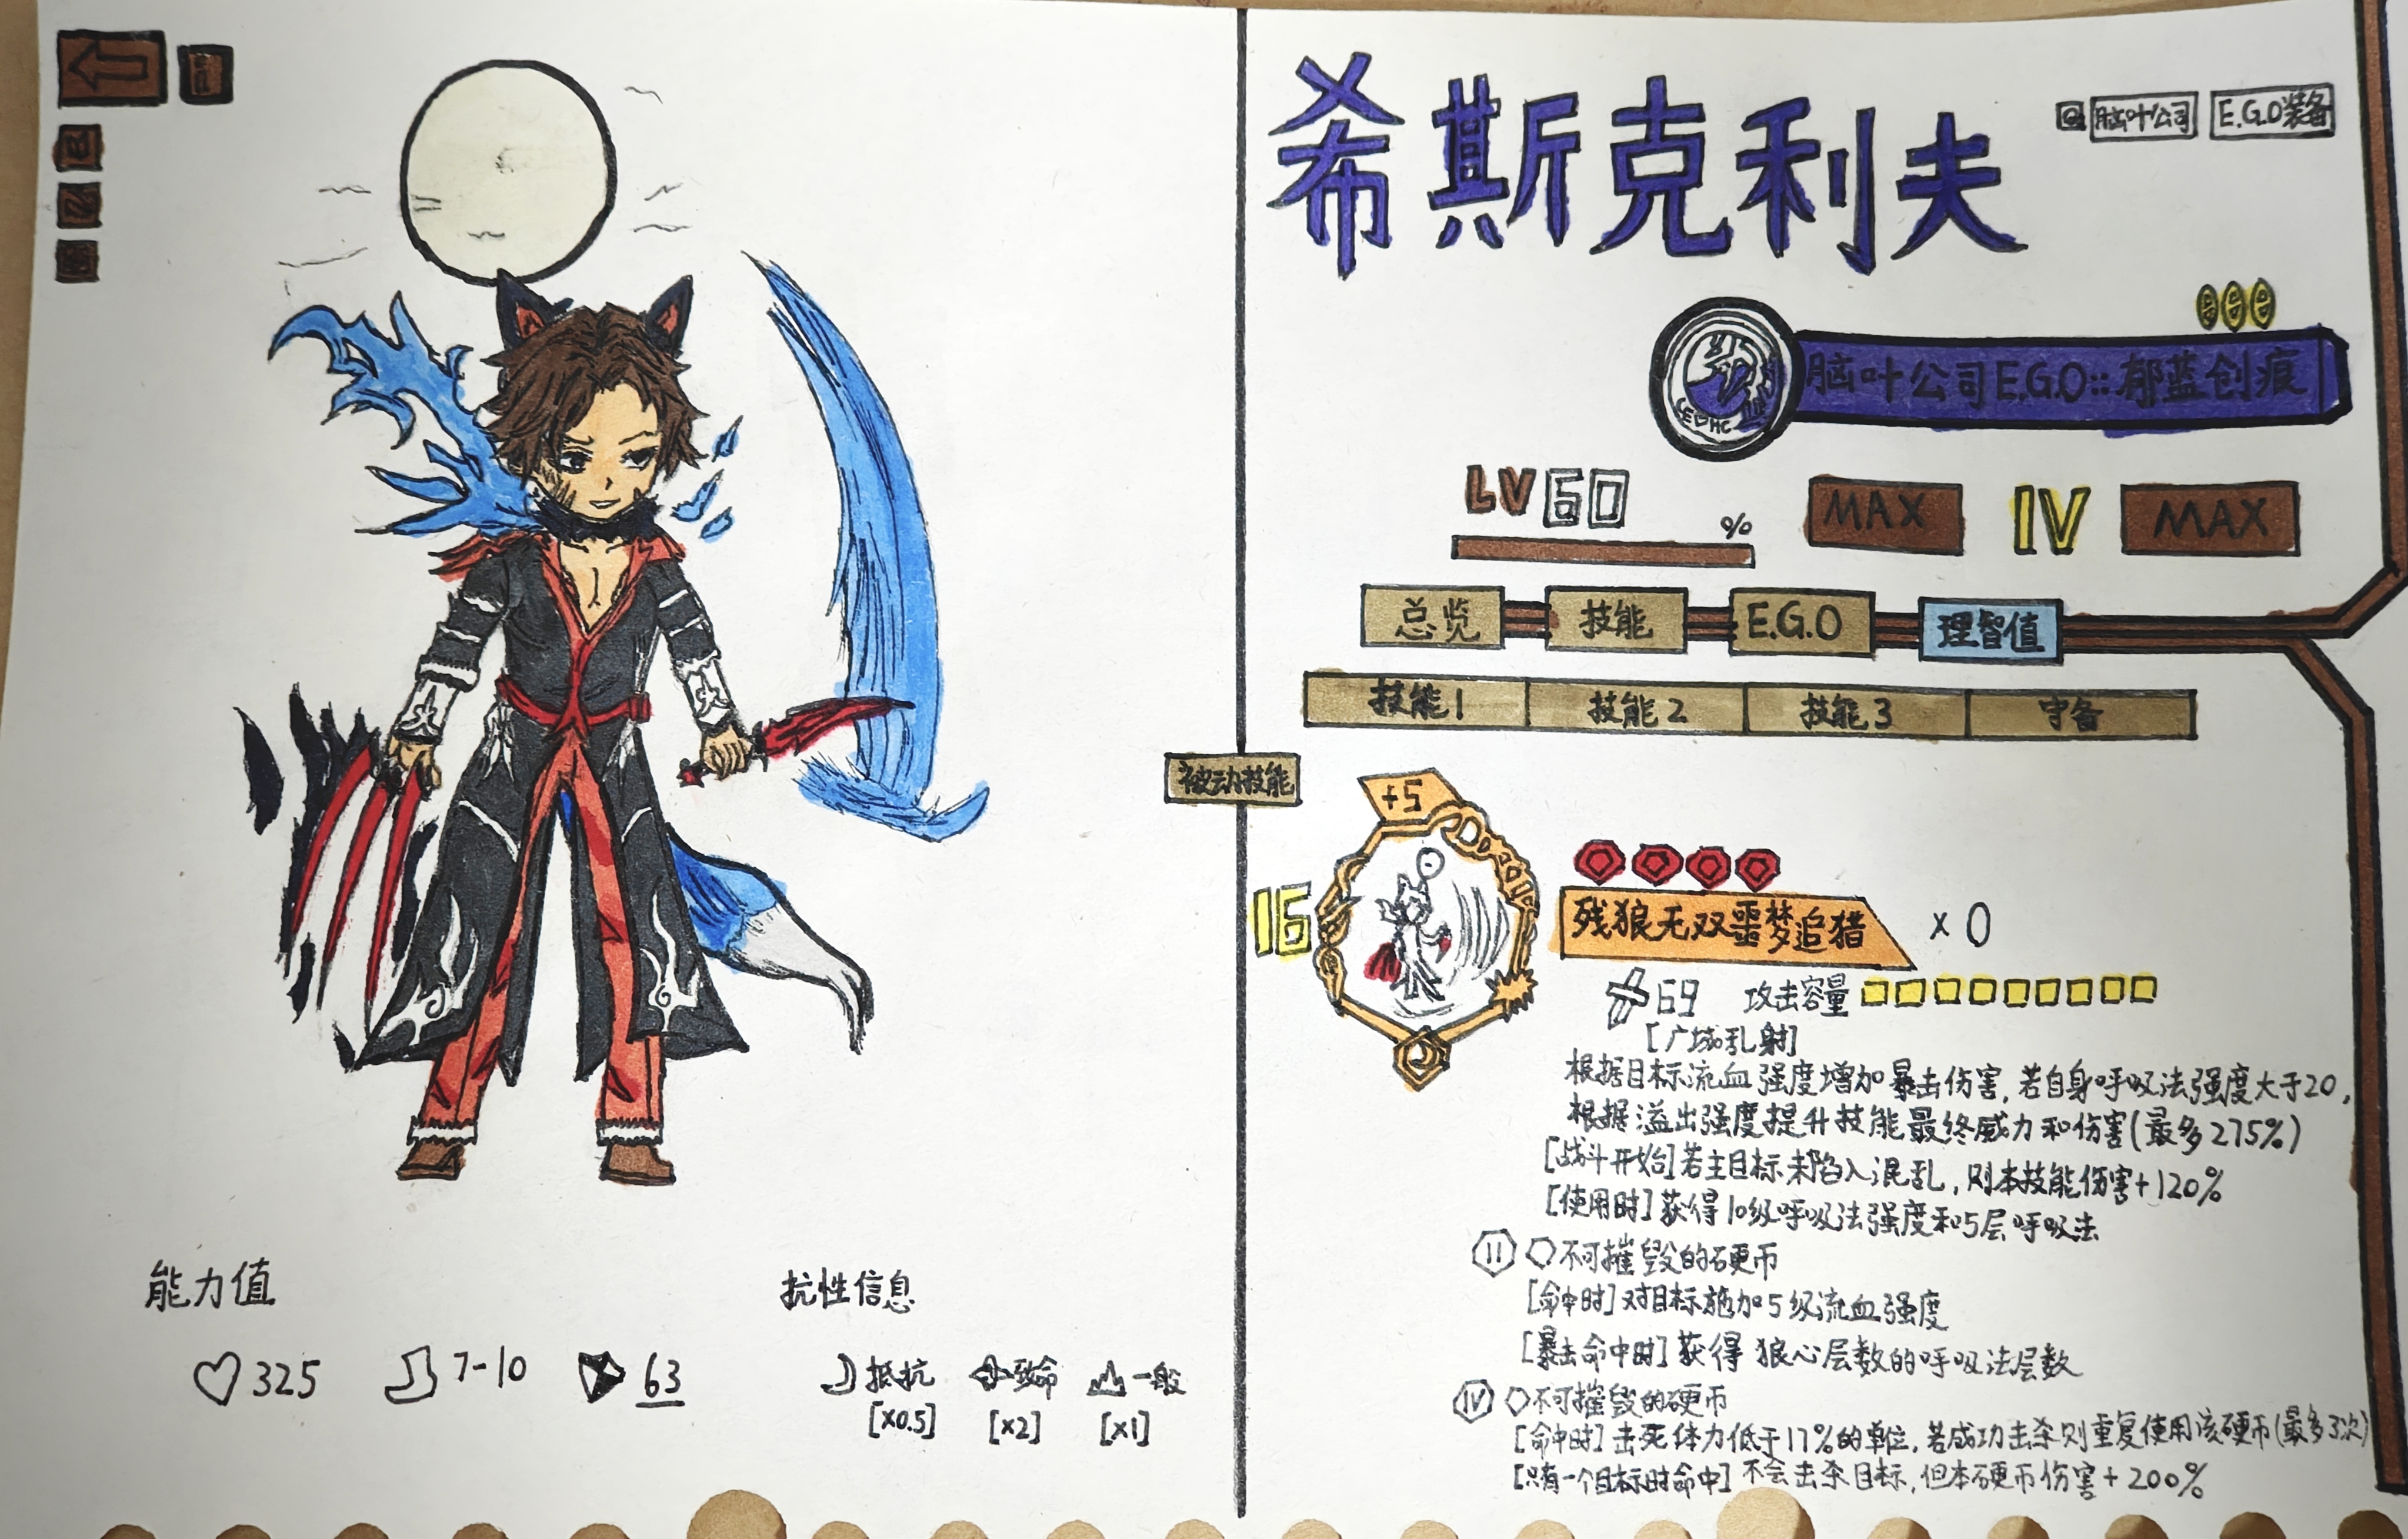 希斯克利夫
脑叶公司
E.G.O装备
脑叶公司E.G.O::郁蓝创痕
LV 60
%
MAX
IV
MAX
总览
技能
E.G.O
理智值
技能1
技能2
技能3
守备
被动技能
+5
16
残狼无双噩梦追猎
×0
69
攻击容量
[广域乱射]
根据目标流血强度增加暴击伤害,若自身呼吸法强度大于20,
根据溢出强度提升技能最终威力和伤害(最多275%)
[战斗开始]若主目标未陷入混乱,则本技能伤害+120%
[使用时]获得10级呼吸法强度和5层呼吸法
II 不可摧毁的硬币
[命中时]对目标施加5级流血强度
[暴击命中时]获得 狼心层数的呼吸法层数
IV 不可摧毁的硬币
[命中时]击死体力低于17%的单位,若成功击杀则重复使用该硬币(最多3次)
[只有一个目标时命中]不会击杀目标,但本硬币伤害+200%
能力值
325
7-10
63
抗性信息
抵抗
致命
一般
[×0.5]
[×2]
[×1]